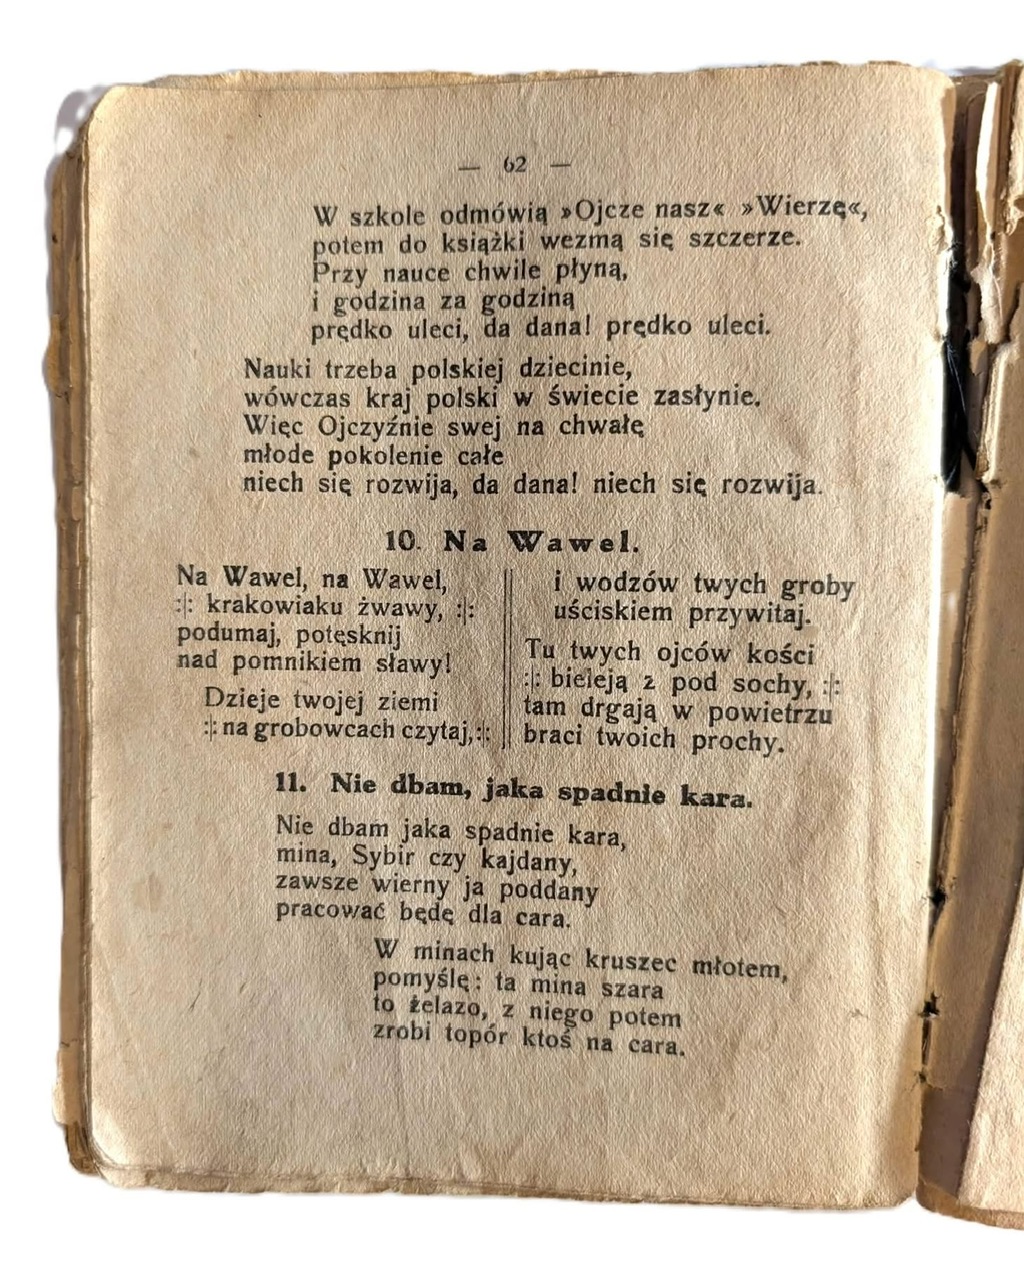 — 62 —
W szkole odmówią »Ojcze nasz« »Wierzę«,
potem do książki wezmą się szczerze.
Przy nauce chwile płyną,
i godzina za godziną
prędko uleci, da dana! prędko uleci.
Nauki trzeba polskiej dziecinie,
wówczas kraj polski w świecie zasłynie.
Więc Ojczyźnie swej na chwałę
młode pokolenie całe
niech się rozwija, da dana! niech się rozwija.
10. Na Wawel.
Na Wawel, na Wawel,
:|: krakowiaku żwawy, :|:
podumaj, potęsknij
nad pomnikiem sławy!
Dzieje twojej ziemi
:|: na grobowcach czytaj, :|:
i wodzów twych groby
uściskiem przywitaj.
Tu twych ojców kości
:|: bieleją z pod sochy, :|:
tam drgają w powietrzu
braci twoich prochy.
11. Nie dbam, jaka spadnie kara.
Nie dbam jaka spadnie kara,
mina, Sybir czy kajdany,
zawsze wierny ja poddany
pracować będę dla cara.
W minach kując kruszec młotem,
pomyślę: ta mina szara
to żelazo, z niego potem
zrobi topór ktoś na cara.